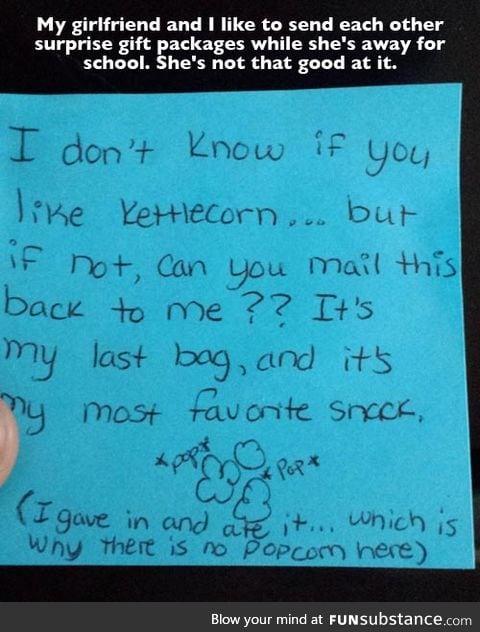 My girlfriend and I like to send each other
surprise gift packages while she's away for
school. She's not that good at it.
I don't know if you
like Kettlecorn... but
if not, can you mail this
back to me ?? It's
my last bag, and it's
my most favorite snack.
*pop*
*pop*
(I gave in and ate it... which is
why there is no popcorn here)
Blow your mind at FUNsubstance.com